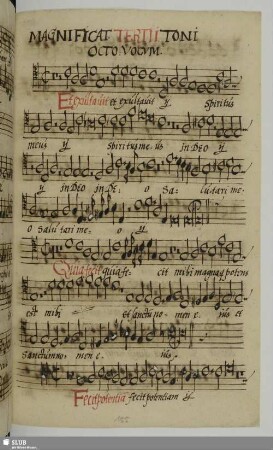 MAGNIFICAT TERTII TONI
OCTO VOCVM
Et exultavit et exultavit ij Spiritus
meus ij Spiritus meus in DEO ij
ij in DEO in DE- o Sa- lutari me-
o Salutari me- o ij
Quia fecit quia fe- cit mihi magna qui potens
est mihi et sanctum no- men e- ius et
sanctum no- men e- ius
Fecit potentiam fecit potentiam
SLUB